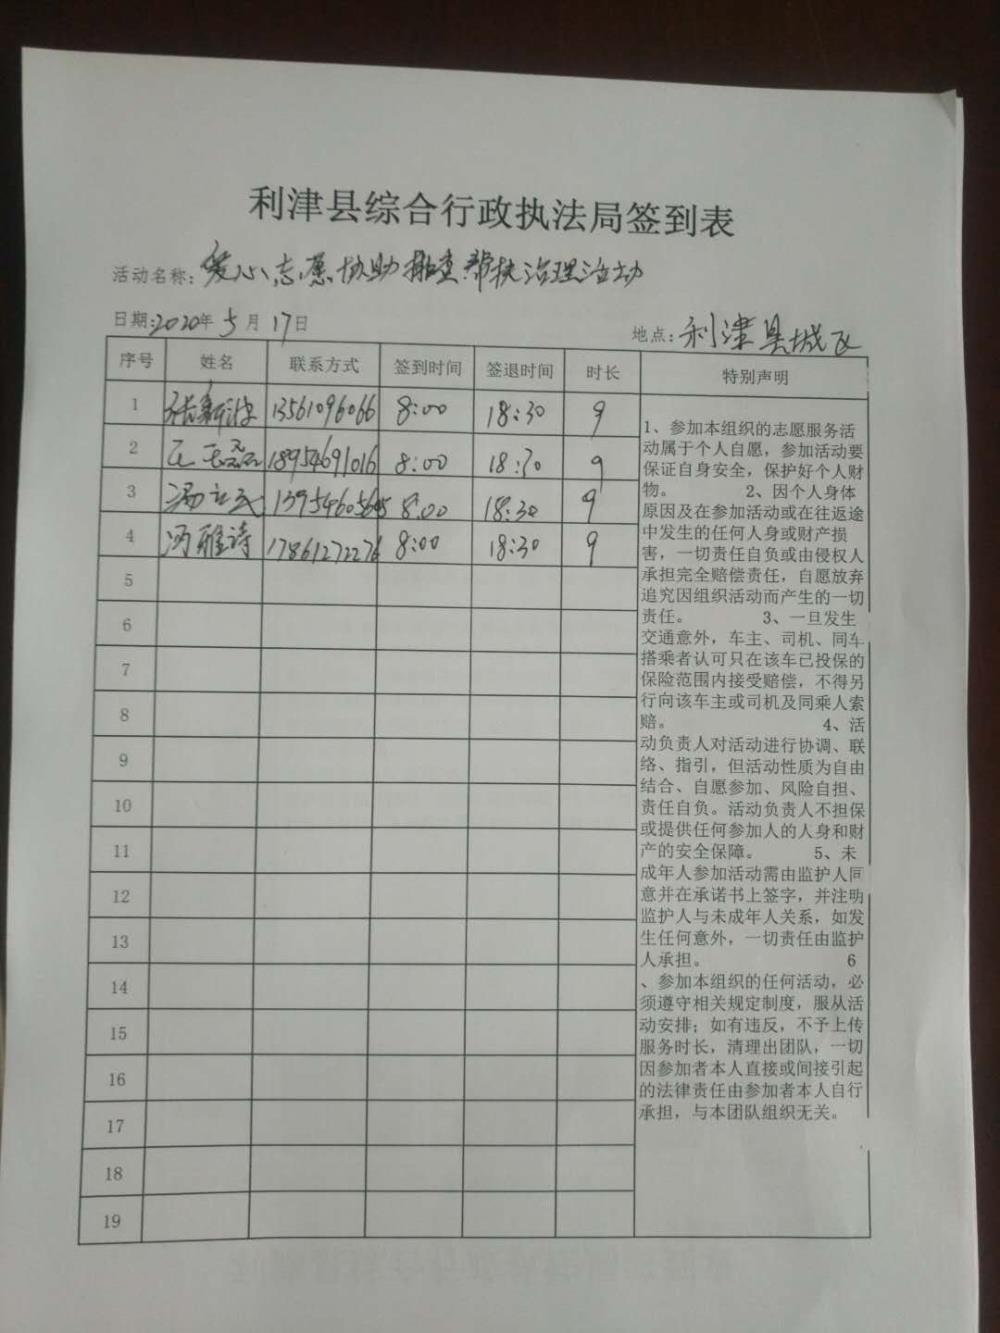 利津县综合行政执法局签到表
活动名称:爱心志愿协助排查帮扶治理活动
日期:2020年5月17日
地点:利津县城区
序号 姓名 联系方式 签到时间 签退时间 时长 特别声明
1 13561096066 8:00 18:30 9
2 18954691016 8:00 18:30 9
3 8:00 18:30 9
4 冯雅诗 17861272276 8:00 18:30 9
5
6
7
8
9
10
11
12
13
14
15
16
17
18
19
1、参加本组织的志愿服务活
动属于个人自愿，参加活动要
保证自身安全，保护好个人财
物。 2、因个人身体
原因及在参加活动或在往返途
中发生的任何人身或财产损
害，一切责任自负或由侵权人
承担完全赔偿责任，自愿放弃
追究因组织活动而产生的一切
责任。 3、一旦发生
交通意外，车主、司机、同车
搭乘者认可只在该车已投保的
保险范围内接受赔偿，不得另
行向该车主或司机及同乘人索
赔。 4、活
动负责人对活动进行协调、联
络、指引，但活动性质为自由
结合、自愿参加、风险自担、
责任自负。活动负责人不担保
或提供任何参加人的人身和财
产的安全保障。 5、未
成年人参加活动需由监护人同
意并在承诺书上签字，并注明
监护人与未成年人关系，如发
生任何意外，一切责任由监护
人承担。 6
、参加本组织的任何活动，必
须遵守相关规定制度，服从活
动安排；如有违反，不予上传
服务时长，清理出团队，一切
因参加者本人直接或间接引起
的法律责任由参加者本人自行
承担，与本团队组织无关。